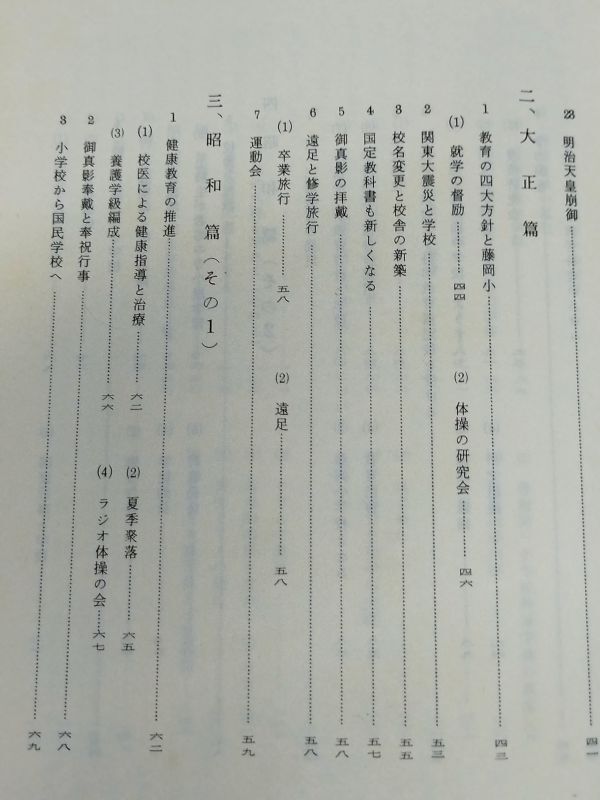 23 明治天皇崩御……四一
二、大正篇
1 教育の四大方針と藤岡小……四三
(1) 就学の督励……四四 (2) 体操の研究会……四六
2 関東大震災と学校……五三
3 校名変更と校舎の新築……五五
4 国定教科書も新しくなる……五七
5 御真影の拝戴……五八
6 遠足と修学旅行……五八
(1) 卒業旅行……五八 (2) 遠足……五八
7 運動会……五九
三、昭和篇(その1)
1 健康教育の推進……六二
(1) 校医による健康指導と治療……六二 (2) 夏季聚落……六五
(3) 養護学級編成……六六 (4) ラジオ体操の会……六七
2 御真影奉戴と奉祝行事……六八
3 小学校から国民学校へ……六九